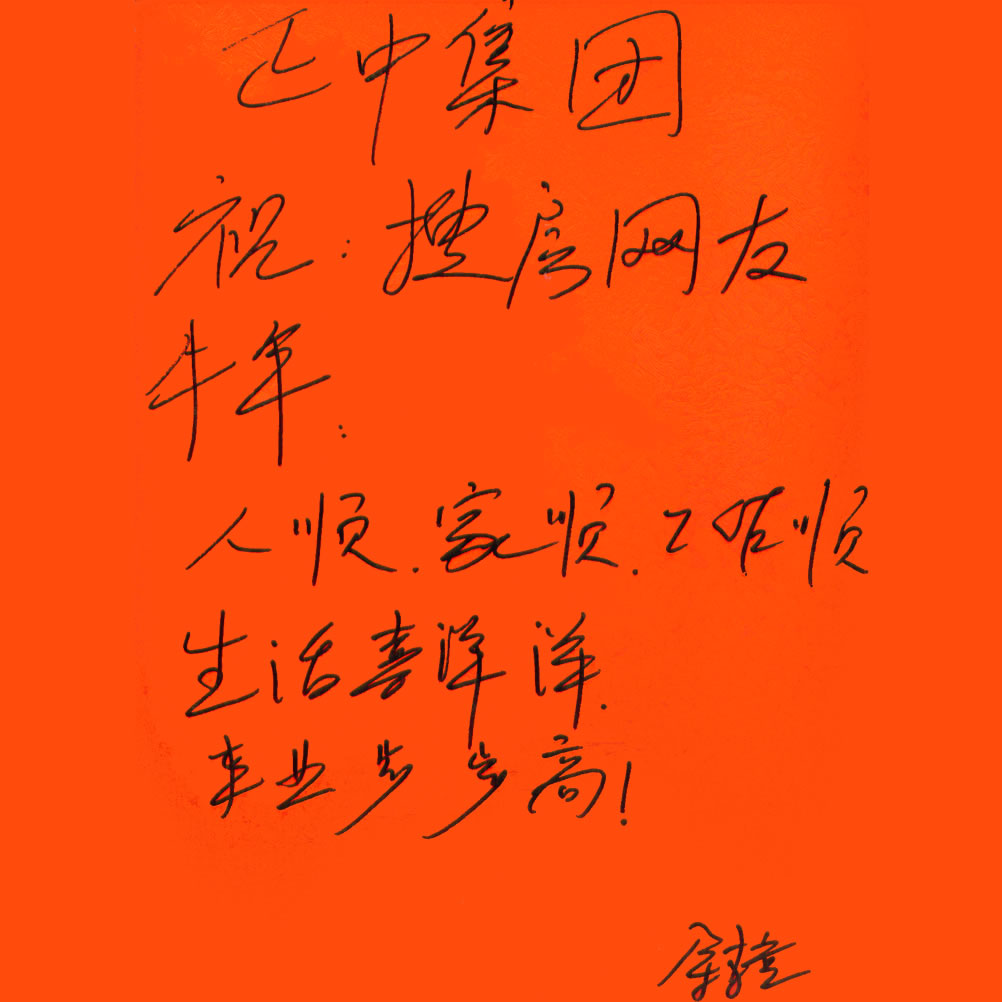 正中集团
祝:搜房网友
牛年:
人顺.家顺.工作顺
生活喜洋洋.
事业步步高!